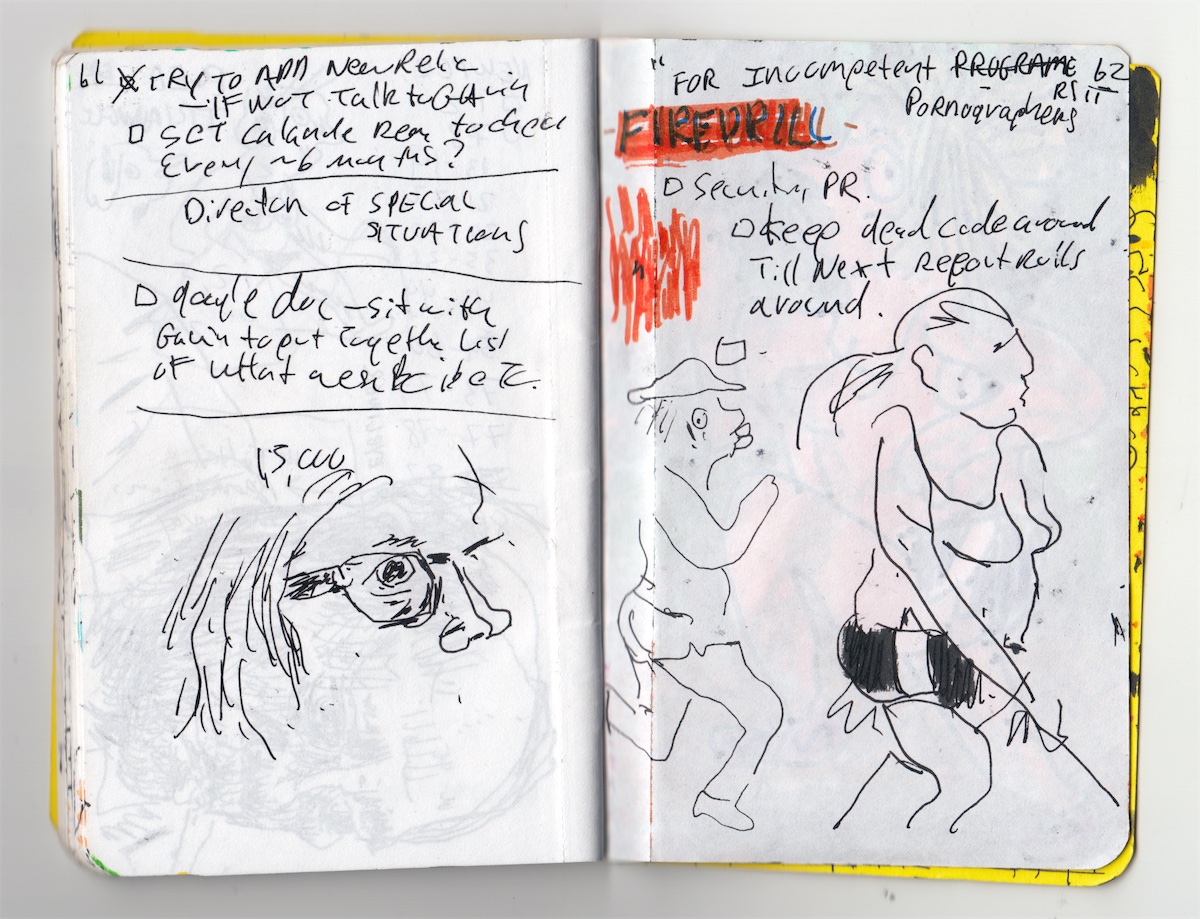 61
TRY TO ADD New Relic
— IF NOT Talk to Gavin
SET Calande Rem to check
Every ~6 months?
Director of SPECIAL
SITUATIONS
google doc — sit with
Gavin to put Together list
of what
15,000
" FOR Incompetent PROGRAME 62
RS"
Pornographers
FIREDRILL
Security PR.
Keep dead code around
Till Next Report Rolls
around.